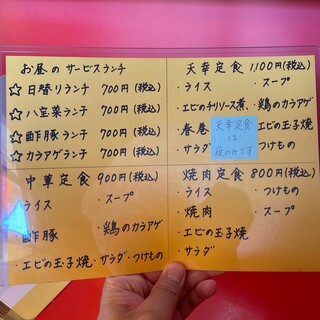 お昼のサービスランチ
☆日替りランチ 700円(税込)
☆八宝菜ランチ 700円(税込)
☆酢豚ランチ 700円(税込)
☆カラアゲランチ 700円(税込)
天幸定食 1100円(税込)
・ライス ・スープ
・エビのチリソース煮、・鶏のカラアゲ
・春巻 ・エビの玉子焼
・サラダ ・つけもの
天幸定食
は
夜のみです
中華定食 900円(税込)
・ライス ・スープ
・酢豚 ・鶏のカラアゲ
・エビの玉子焼・サラダ・つけもの
焼肉定食 800円(税込)
・ライス ・つけもの
・焼肉 ・スープ
・エビの玉子焼
・サラダ